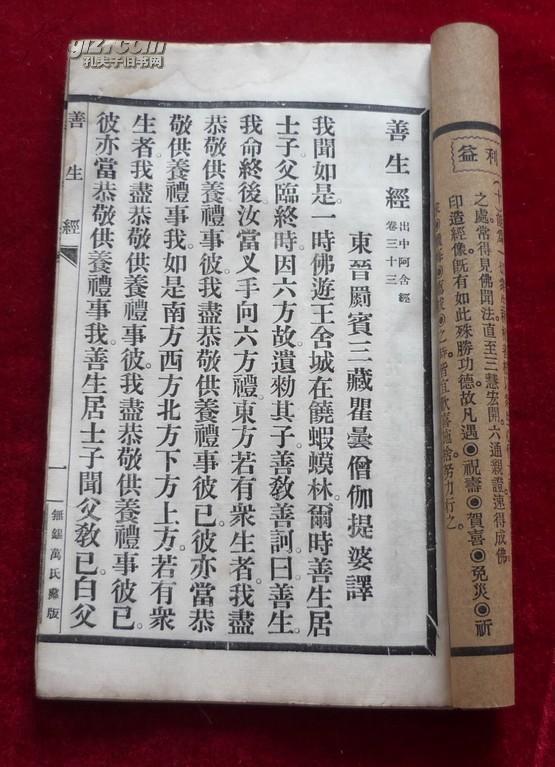 利益
之處常得見佛聞法直至三慧宏開六通親證速得成佛
印造經像既有如此殊勝功德故凡遇◉祝壽◉賀喜◉免災◉祈
善生經 出中阿含經卷三十三
東晉罽賓三藏瞿曇僧伽提婆譯
我聞如是。一時佛遊王舍城在饒蝦蟆林。爾時善生居
士子父臨終時。因六方故。遺勑其子善教善訶。曰善生。
我命終後汝當叉手向六方禮。東方若有衆生者。我盡
恭敬供養禮事彼。我盡恭敬供養禮事彼已。彼亦當恭
敬供養禮事我。如是南方西方北方下方上方。若有衆
生者。我盡恭敬供養禮事彼。我盡恭敬供養禮事彼已。
彼亦當恭敬供養禮事我。善生居士子聞父教已。白父
善生經
一
無錫萬氏藏版
孔夫子旧书网